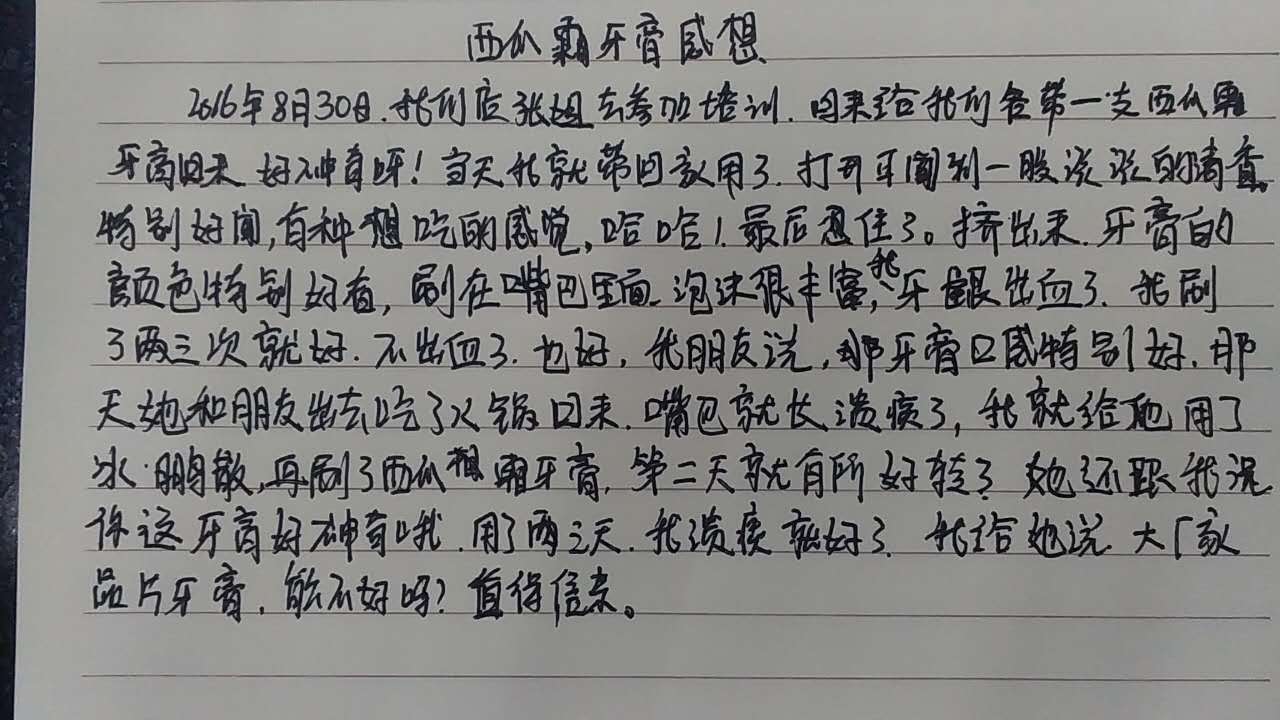 西瓜霜牙膏感想
2016年8月30日.我们店张姐去参加培训.回来给我们各带一支西瓜霜
牙膏回来 好神奇呀！当天我就带回家用了.打开牙闻到一股淡淡的清香。
特别好闻,有种想吃的感觉,哈哈！最后忍住了。挤出来.牙膏的
颜色特别好看,刷在嘴巴里面.泡沫很丰富,我牙龈出血了.我刷
了两三次就好.不出血了.也好,我朋友说,那牙膏口感特别好.那
天她和朋友出去吃了火锅回来.嘴巴就长溃疡了,我就给她用了
冰·鹏散,再刷了西瓜霜牙膏,第二天就有所好转了 她还跟我说
你这牙膏好神奇哦.用了两三天.我溃疡就好了.我给她说 大厂家
品片牙膏,能不好吗？值得信来。